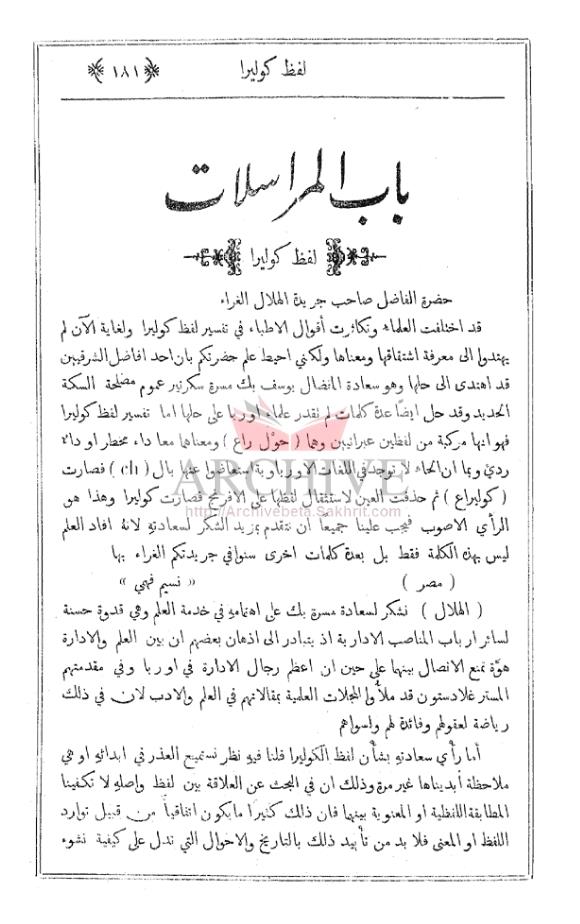 لفظ كوليرا ﴿١٨١﴾
باب المراسلات
لفظ كوليرا
حضرة الفاضل صاحب جريدة الهلال الغراء
قد اختلفت العلماء وتكاثرت أقوال الاطباء في تفسير لفظ كوليرا ولغاية الآن لم
يهتدوا الى معرفة اشتقاقها ومعناها ولكني احيط علم حضرتكم بان احد افاضل الشرقيين
قد اهتدى الى حلها وهو سعادة المفضال يوسف بك مسرة سكرتير عموم مصلحة السكة
الحديد وقد حل ايضًا عدة كلمات لم نقدر علماء اوربا على حلها اما تفسير لفظ كوليرا
فهو انها مركبة من لفظين عبرانيين وهما ( حوْل راع ) ومعناها معا داء مخطر او داء
رديّ وبما ان الحاء لا توجد في اللغات الاورباوية استعاضوا عنها بال ( ch ) فصارت
( كوليراع ) ثم حذفت العين لاستثقال لفظها على الافرنج فصارت كوليرا وهذا هو
الرأي الاصوب فيجب علينا جميعًا ان نتقدم بمزيد الشكر لسعادتهِ لانهُ افاد العلم
ليس بهذه الكلمة فقط بل بعدة كلمات اخرى سنوافي جريدتكم الغراء بها
( مصر ) « نسيم فهمي »
( الهلال ) نشكر لسعادة مسرة بك على اهتمامهِ في خدمة العلم وهي قدوة حسنة
لسائر ارباب المناصب الادارية اذ يتبادر الى اذهان بعضهم ان بين العلم والادارة
هوّة تمنع الاتصال بينها على حين ان اعظم رجال الادارة في اوربا وفي مقدمتهم
المستر غلادستون قد ملأُوا المجلات العلمية بمقالاتهم في العلم والادب لان في ذلك
رياضة لعقولهم وفائدة لهم ولسواهم
أما رأي سعادتهِ بشأن لفظ الكوليرا فلنا فيهِ نظر نستميح العذر في ابدائهِ او هي
ملاحظة أبديناها غير مرة وذلك ان في البحث عن العلاقة بين لفظ واصلهِ لا تكفينا
المطابقة اللفظية او المعنوية بينها فان ذلك كثيرًا ما يكون اتفاقيًا من قبيل توارد
اللفظ او المعنى فلا بد من تأييد ذلك بالتاريخ والاحوال التي تدل على كيفية نشوء
ARCHIVE
http://Archivebeta.Sakhrit.com